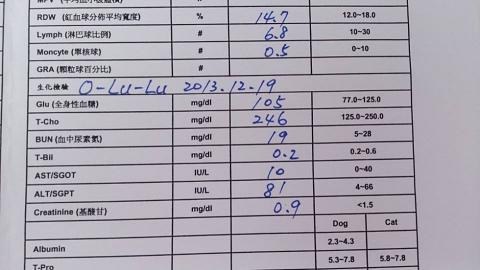 RDW (紅血球分佈平均寬度) % 14.7 12.0~18.0
Lymph (淋巴球比例) # 6.8 10~30
Moncyte (單核球) # 0.5 0~10
GRA (顆粒球百分比) #
生化檢驗 O-Lu-Lu 2013.12.19
Glu (全身性血糖) mg/dl 105 77.0~125.0
T-Cho mg/dl 246 125.0~250.0
BUN (血中尿素氮) mg/dl 19 5~28
T-Bil mg/dl 0.2 0.2~0.6
AST/SGOT IU/L 10 0~40
ALT/SGPT IU/L 81 4~66
Creatinine (肌酸甘) mg/dl 0.9 <1.5
Dog Cat
Albumin 2.3~4.3
T-Pro 5.3~7.8 5.8~7.8